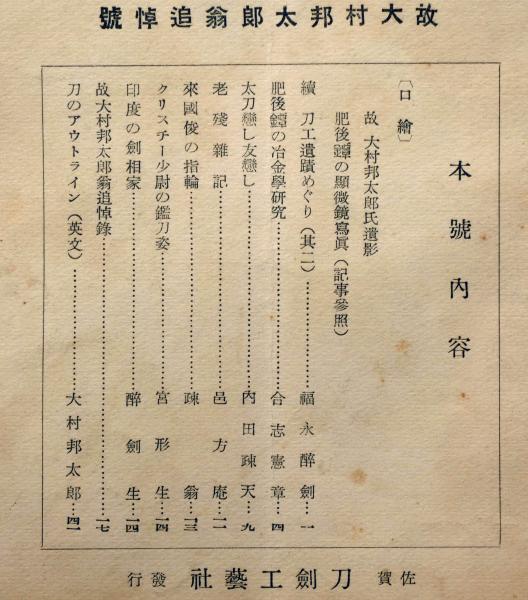 故大村邦太郎翁追悼號
本號內容
〔口繪〕
故 大村邦太郎氏遺影
肥後鐔の顯微鏡寫眞（記事參照）
續 刀工遺蹟めぐり（其二）…福永醉劍…一
肥後鐔の冶金學硏究…合志憲章…四
太刀戀し友戀し…內田疎天…九
老殘雜記…邑方庵…一一
來國俊の指輪…疎翁…一三
クリスチー少尉の鑑刀姿…宮形生…一四
印度の劍相家…醉劍生…一四
故大村邦太郎翁追悼錄…一七
刀のアウトライン（英文）…大村邦太郎…四一
佐賀 刀劍工藝社 發行